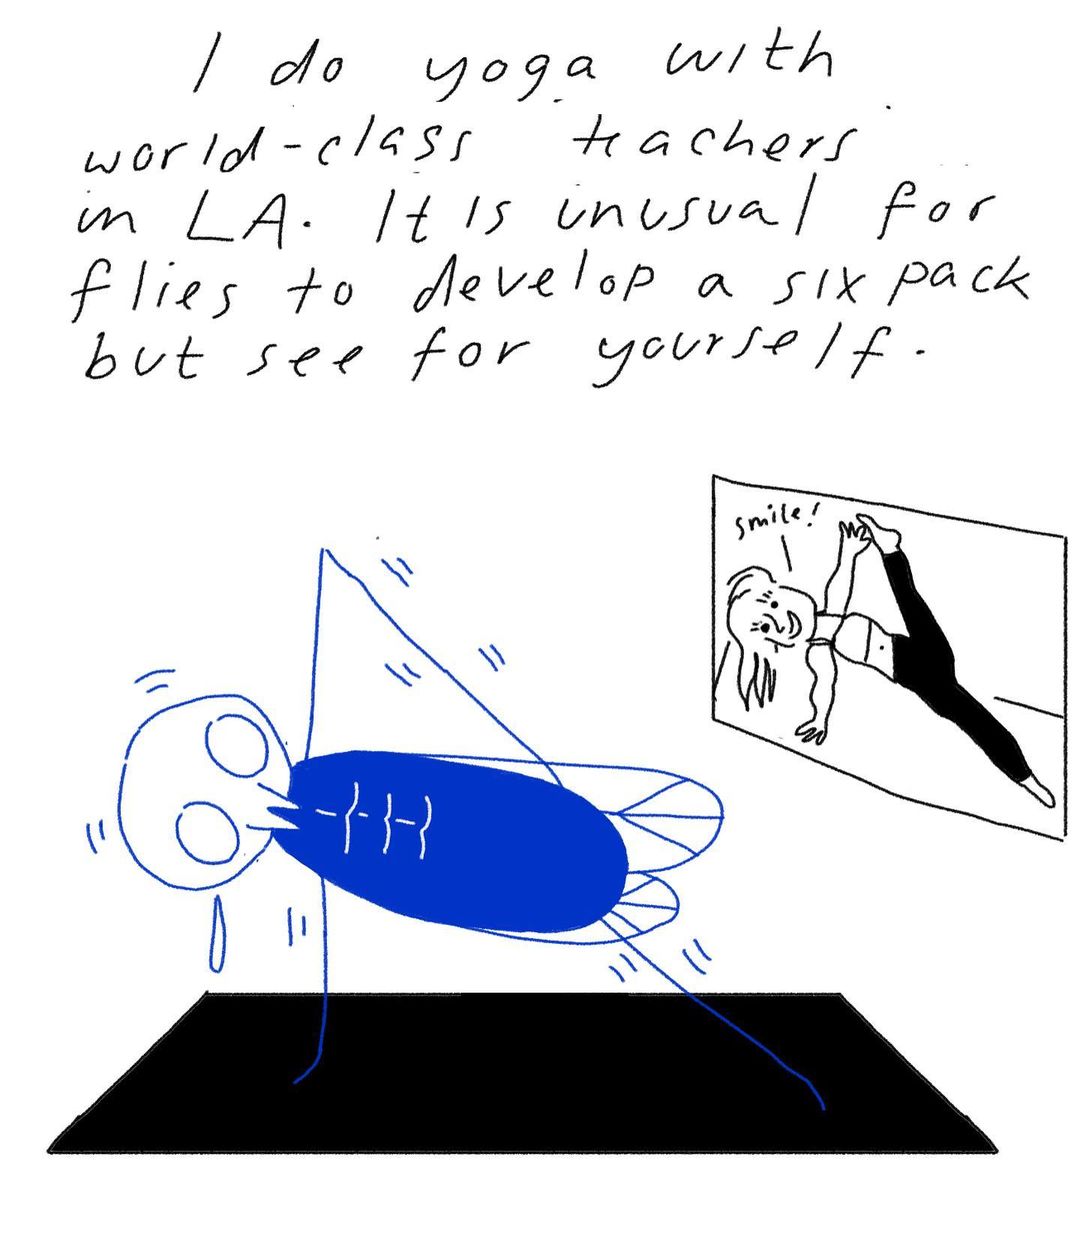 I do yoga with
world-class teachers
in LA. It is unusual for
flies to develop a six pack
but see for yourself.
smile!